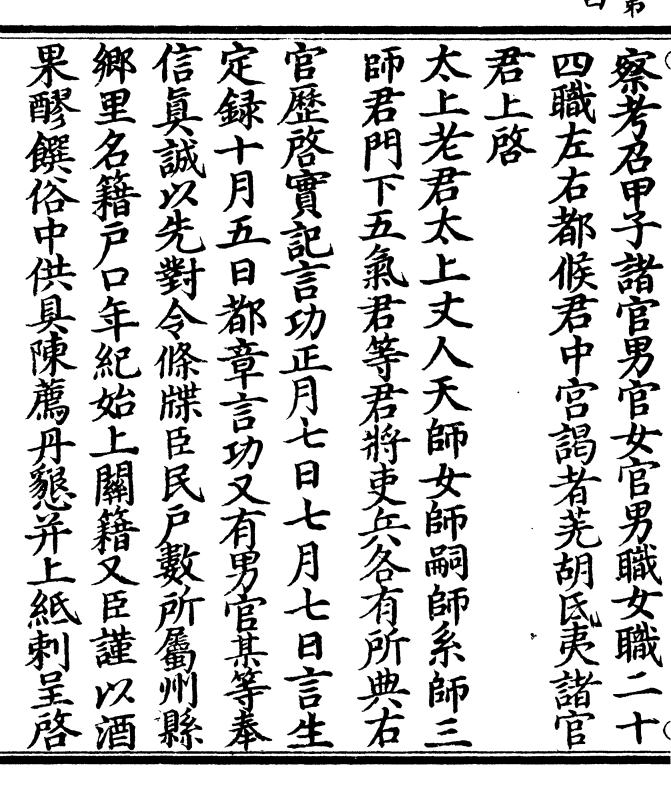 察考召甲子諸官男官女官男職女職二十
四職左右都候君中宮謁者羌胡氐夷諸官
君上啓
太上老君太上丈人天師女師嗣師系師三
師君門下五氣君等君將吏兵各有所典右
官歷啓實記言功正月七日七月七日言生
定錄十月五日都章言功又有男官某等奉
信眞誠以先對令條牒臣民戶數所屬州縣
鄉里名籍戶口年紀始上關籍又臣謹以酒
果醪饌俗中供具陳薦丹懇并上紙刺呈啓